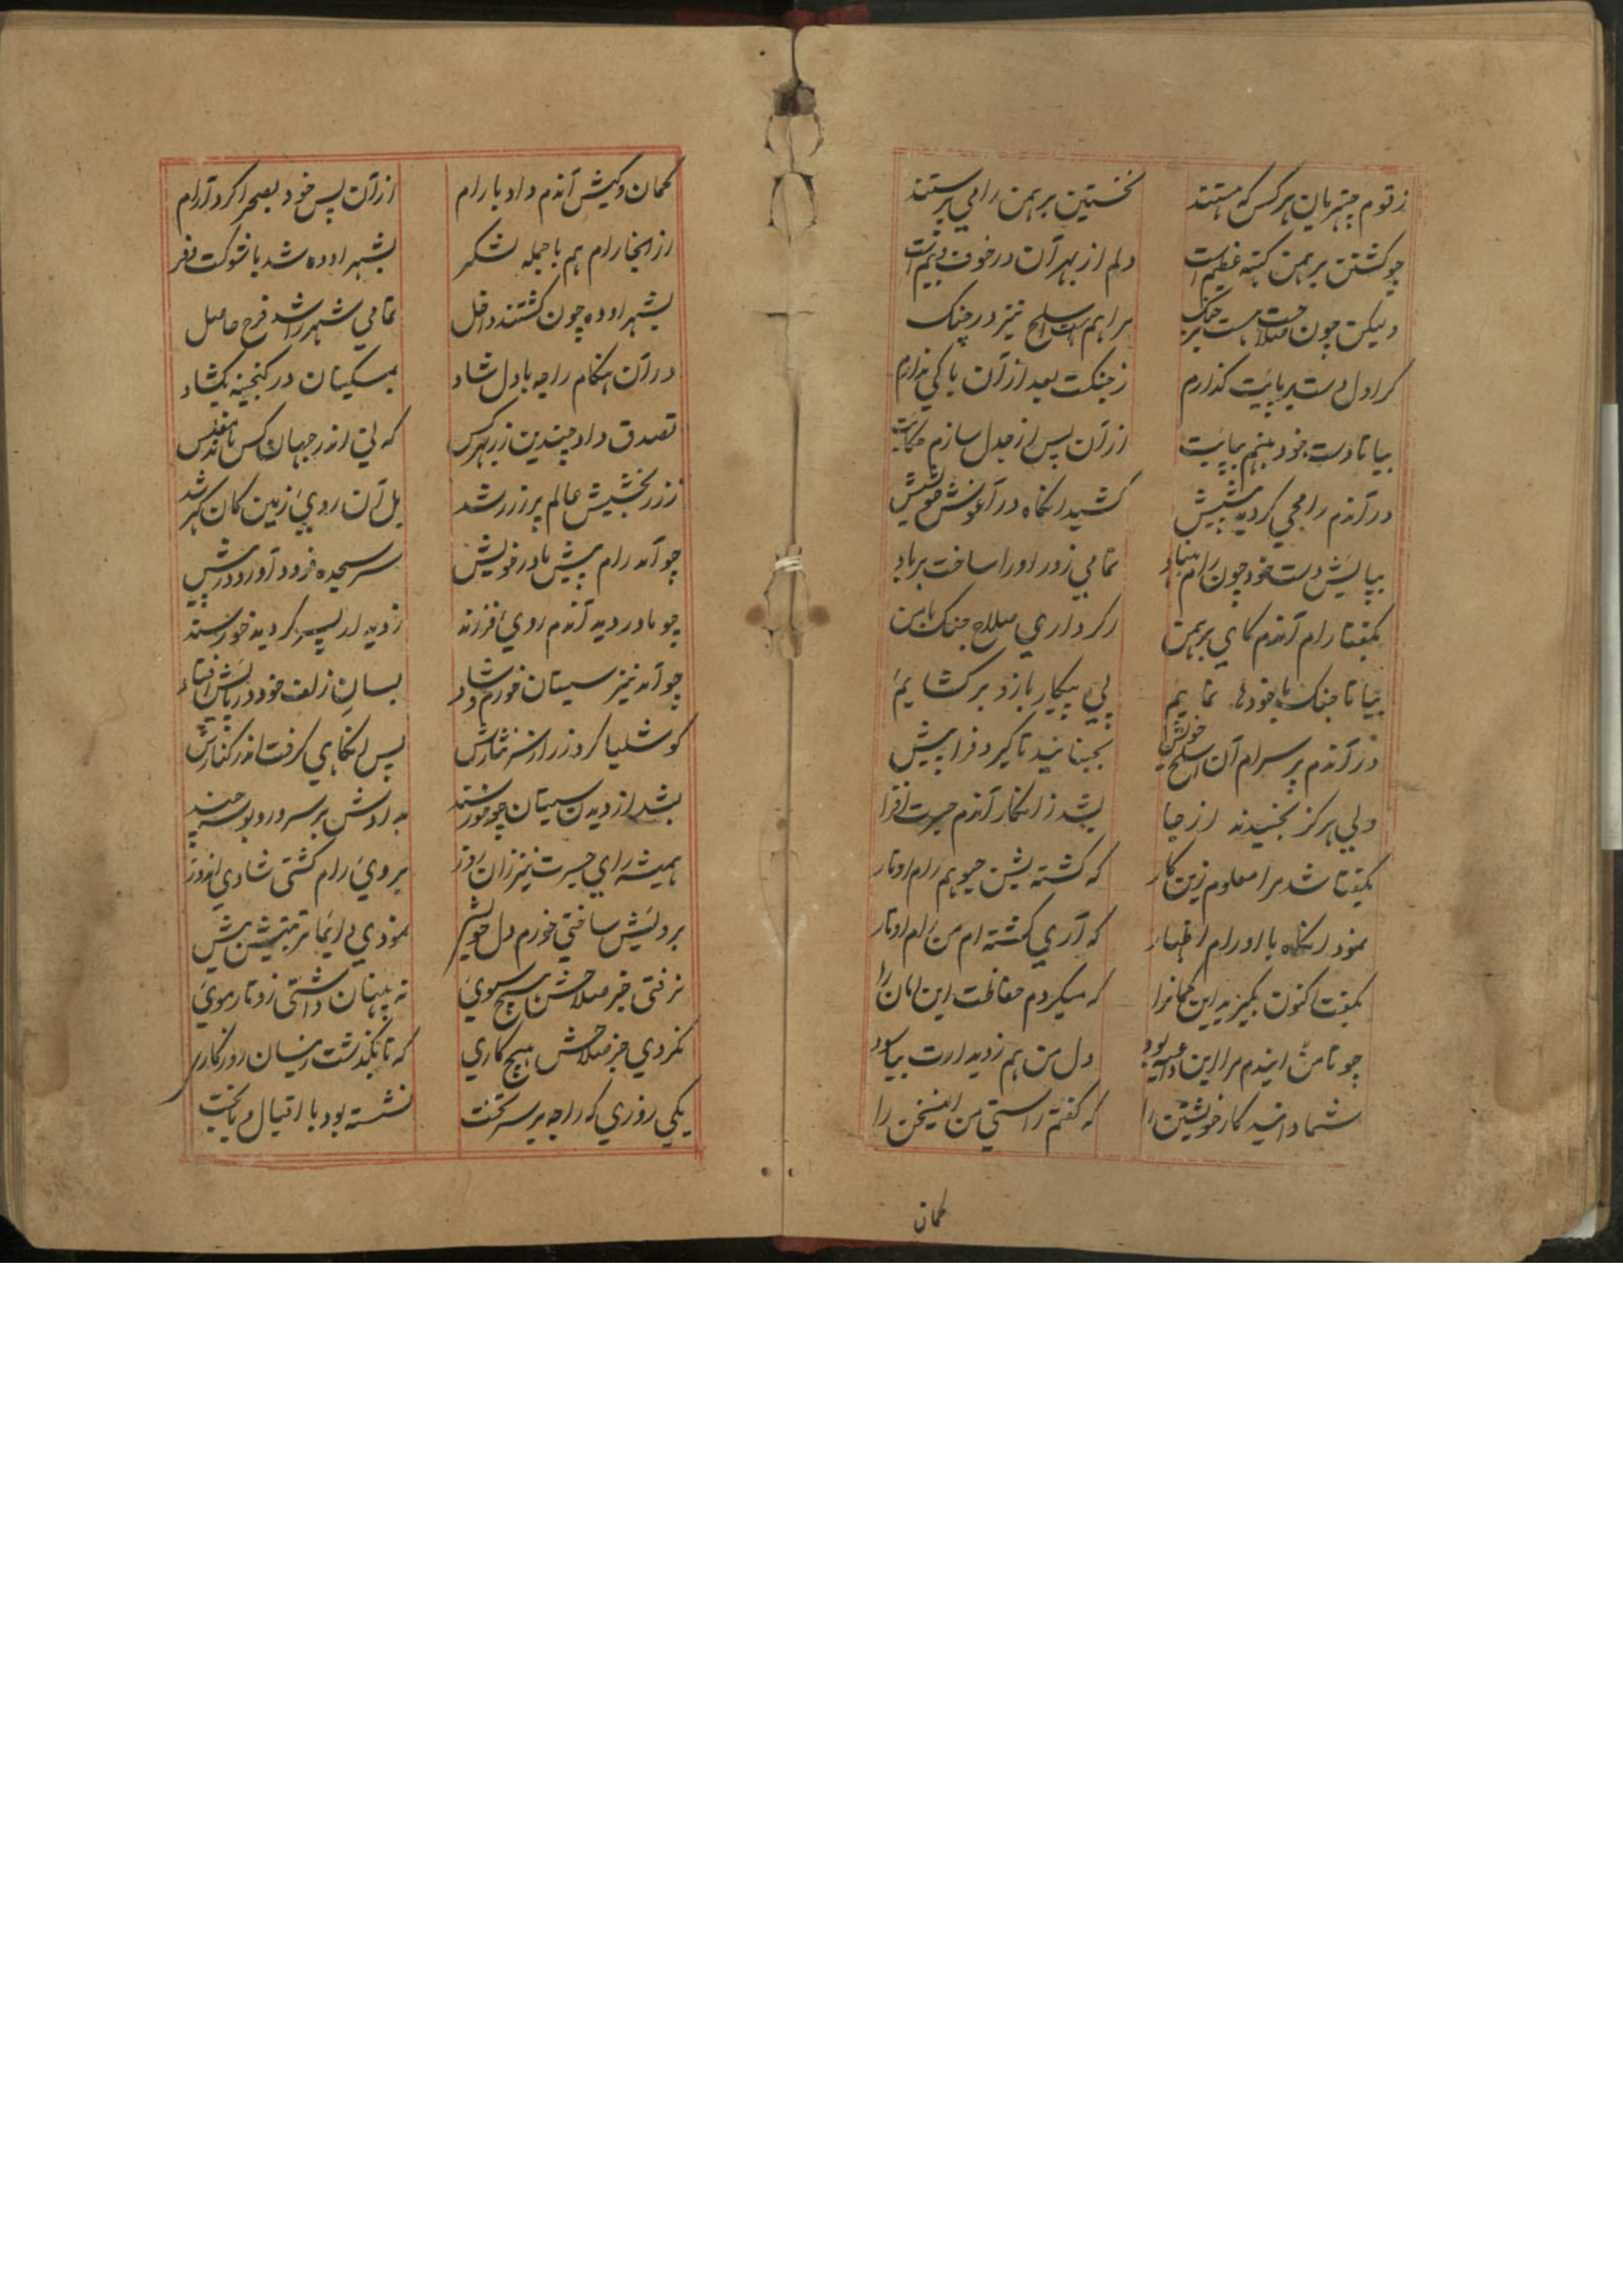 ز قوم چتریان هر کس که هستند نخستین برهمن را می پرستند
چو کشتن برهمن کنه عظیم است دلم از بهر آن در خوف و بیم است
ولیکن چون صلاحت هست بر جنک مرا هم هست اسلح نیز در چنک
کرا دل دست بر پایت کذارم ز جنکت بعد از آن باکی ندارم
بیا تا دست خود بنهم بپایت از آن پس از جدل سازم حکایت
در آندم رامجی کردید پیشش کشید آنکاه در آغوش خویشش
بپایش دست خود چون رام بنهاد تمامی زور او را ساخت برباد
بکفتا رام آندم کای برهمن اکر داری صلاح جنک با من
بیا تا جنک با خودها نماییم پی پیکار بازو برکشاییم
در آندم پرسرام آن اسلح خویش بجنبانید تا کیرد فرا پیش
ولی هرکز نجنبیدند از جا بشد زانکار آندم حیرت افزا
بکفتا شد مرا معلوم زین کار که کشته بیشن جیو هم رام اوتار
نمود آنکاه با او رام اظهار که آری کشته ام من رام اوتار
بکفت اکنون بکیرید این کمانرا که میکردم حفاظت این امان را
چو تا من ایندم مرا این بود دل من هم ز دیدارت بیاسود
شما دانید کار خویشتن را که کفتم راستی من این سخن را
کمان
کمان و کیش آندم داد با رام از آن پس خود بصحرا کرد آرام
از انجا رام هم با جمله لشکر بشهر اوده شد با شوکت و فر
بشهر اوده چون کشتند داخل تمامی شهر را شد فرح حاصل
در آن هنکام راجه با دل شاد بمسکینان در کنجینه بکشاد
تصدق داد چندین زر بهر کس که نی اندر جهان کس ماند مفلس
ز زر بخشیش عالم پر ز زر شد بل آن روی زمین کان کهر شد
چو آمد رام پیش مادر خویش سر سجده فرود آورد در پیش
چو مادر دید آندم روی فرزند ز دیدار پسر کردید خورسند
چو آمد نیز سیتان خورم و شاد بسان زلف خود در پایش افتاد
کوشلیا کرد زر از سر نثارش پس آنکاهی کرفت اندر کنارش
بشد از دیدن سیتان چو خورسند بدادش بر سر و رو بوسه چند
همیشه رای جسرت نیز زان روز بروی رام کشتی شادی اندوز
برویش ساختی خورم دل خویش نمودی دایما تربیتش بیش
نرفتی جز صلاحش هیچ سوی نه پنهان داشتی زو تار موی
نکردی جز صلاحش هیچ کاری که تا بکذشت زینسان روزکاری
یکی روزی که راجه بر سر تخت نشسته بود با اقبال و با بخت